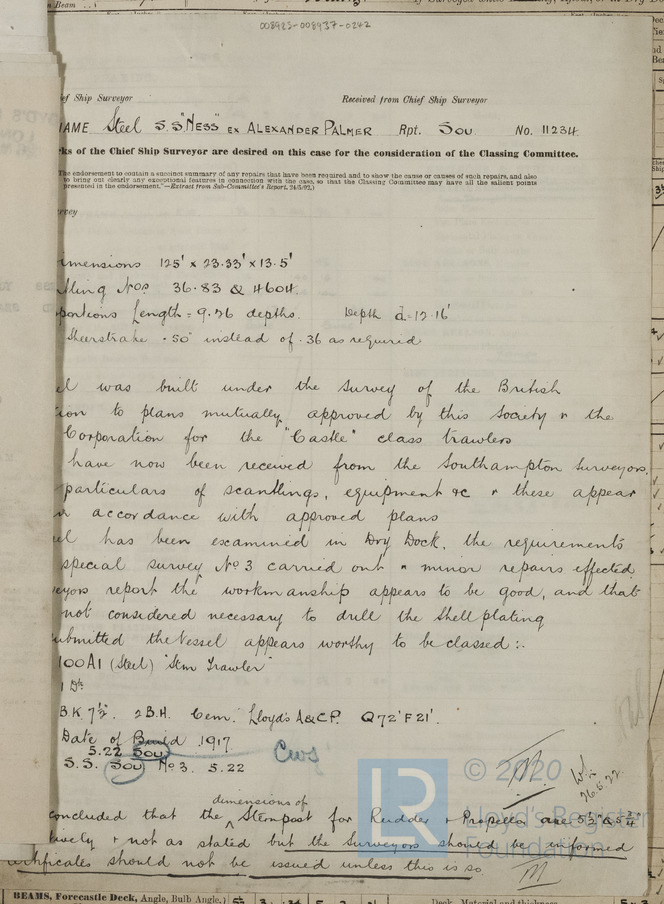 008925-008937-0242
ef Ship Surveyor Received from Chief Ship Surveyor
NAME Steel S.S. "NESS" EX ALEXANDER PALMER Rpt. SOU No. 11234
ks of the Chief Ship Surveyor are desired on this case for the consideration of the Classing Committee.
The endorsement to contain a succinct summary of any repairs that have been required and to show the cause or causes of such repairs, and also
to bring out clearly any exceptional features in connection with the case, so that the Classing Committee may have all the salient points
presented in the endorsement."—Extract from Sub-Committee's Report, 24/5/02.)
rvey
imensions 125' x 23.33' x 13.5'
Nos 36.83 & 4604.
portions Length = 9.26 depths. Depth d = 12.16'
Sheerstrake .50 instead of .36 as required
el was built under the Survey of the British
tion to plans mutually approved by this Society & the
Corporation for the "Castle" class trawlers
have now been received from the Southampton Surveyors,
particulars of scantlings, equipment &c & these appear
n accordance with approved plans
el has been examined in Dry Dock, the requirements
special survey No 3 carried out & minor repairs effected
eyors report the workmanship appears to be good, and that
not considered necessary to drill the shell plating
ubmitted the Vessel appears worthy to be classed :.
100A1 (Steel) "Stm Trawler"
1 Dk
B.K 7½". 2 B.H. Cem. Lloyd's A&CP. Q72' F21'.
Date of Build 1917.
5.22 Sou
S.S. Sou No 3. 5.22
26.5.22
© 2020
Lloyd's Register
Foundation
LR
dimensions of
concluded that the Sternpost for Rudder & Propeller are
tively & not as stated but the Surveyors should be informed
ertificates should not be issued unless this is so
BEAMS, Forecastle Deck, Angle, Bulb Angle,